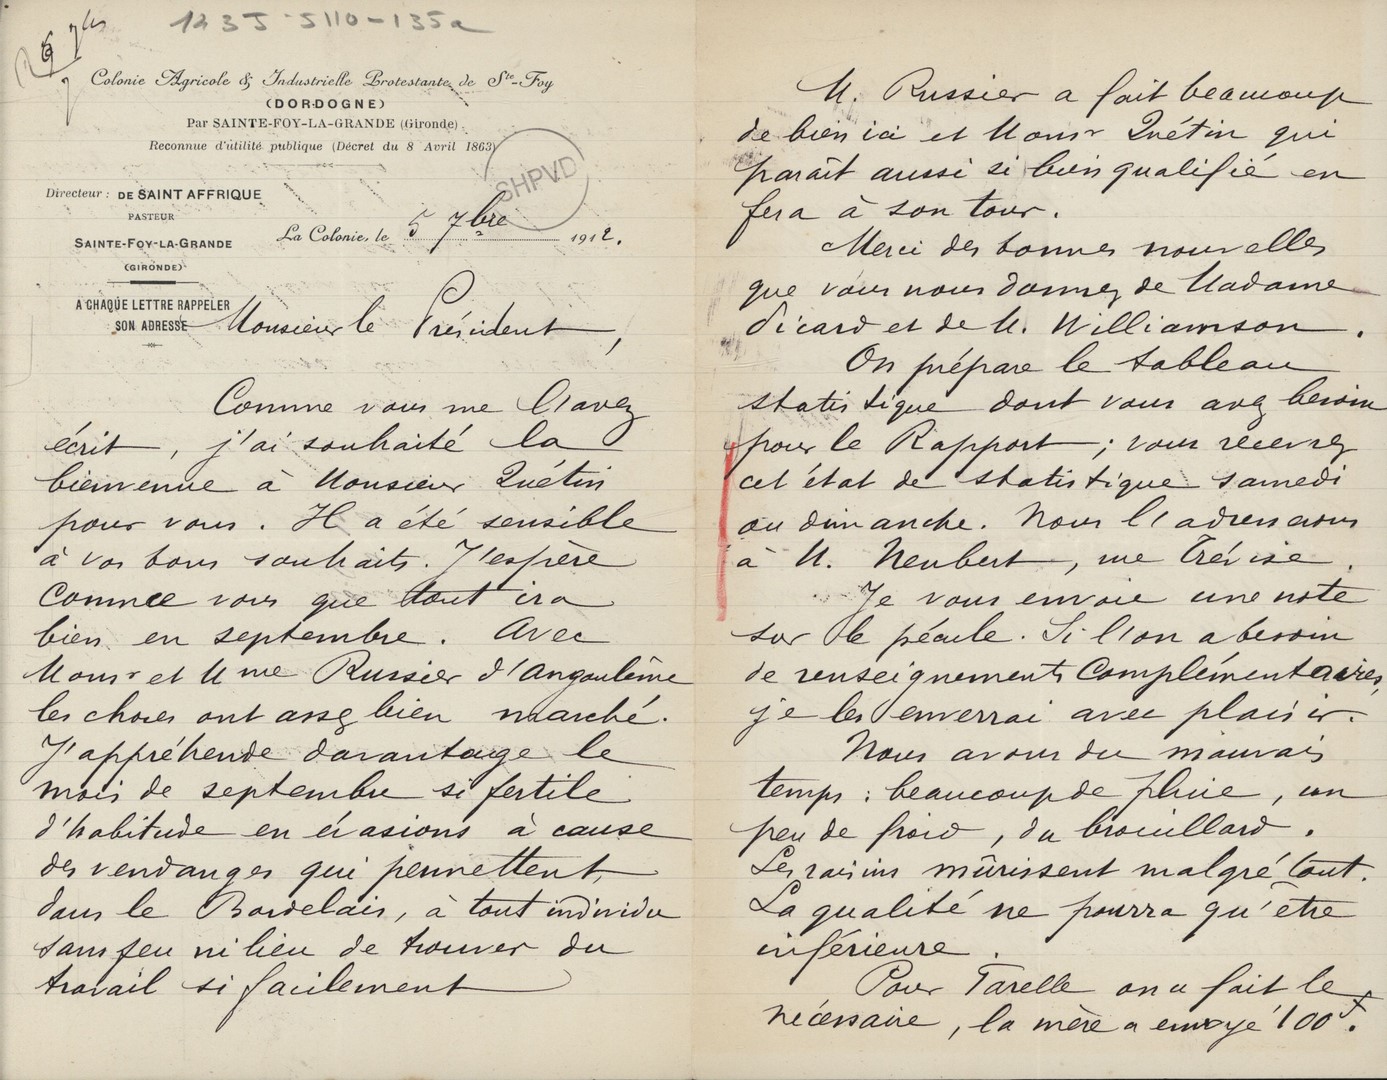 123J 5110-135a
Colonie Agricole & Industrielle Protestante de Ste-Foy
(DORDOGNE)
Par SAINTE-FOY-LA-GRANDE (Gironde)
Reconnue d'utilité publique (Décret du 8 Avril 1863)
SHPVD
Directeur : DE SAINT AFFRIQUE
PASTEUR
SAINTE-FOY-LA-GRANDE
(GIRONDE)
A CHAQUE LETTRE RAPPELER
SON ADRESSE
La Colonie, le 5 7bre 1912.
Monsieur le Président,
Comme vous me l'avez
écrit, j'ai souhaité la
bienvenue à Monsieur Quétin
pour vous. Il a été sensible
à vos bons souhaits. J'espère
comme vous que tout ira
bien en septembre. Avec
Monsr et Mme Russier d'Angoulême
les choses ont assez bien marché.
J'appréhende davantage le
mois de septembre si fertile
d'habitude en évasions à cause
des vendanges qui permettent,
dans le Bordelais, à tout individu
sans feu ni lieu de trouver du
travail si facilement
M. Russier a fait beaucoup
de bien ici et Monsr Quétin qui
paraît aussi si bien qualifié en
fera à son tour.
Merci des bonnes nouvelles
que vous nous donnez de Madame
Dicard et de M. Williamson.
On prépare le tableau
statistique dont vous avez besoin
pour le Rapport ; vous recevrez
cet état de statistique samedi
ou dimanche. Nous l'adresserons
à M. Neubert, rue Trévise.
Je vous envoie une note
sur le pécule. Si l'on a besoin
de renseignements complémentaires,
je les enverrai avec plaisir.
Nous avons du mauvais
temps : beaucoup de pluie, un
peu de froid, du brouillard.
Les raisins mûrissent malgré tout.
La qualité ne pourra qu'être
inférieure.
Pour Tarelle on a fait le
nécessaire, la mère a envoyé 100f.